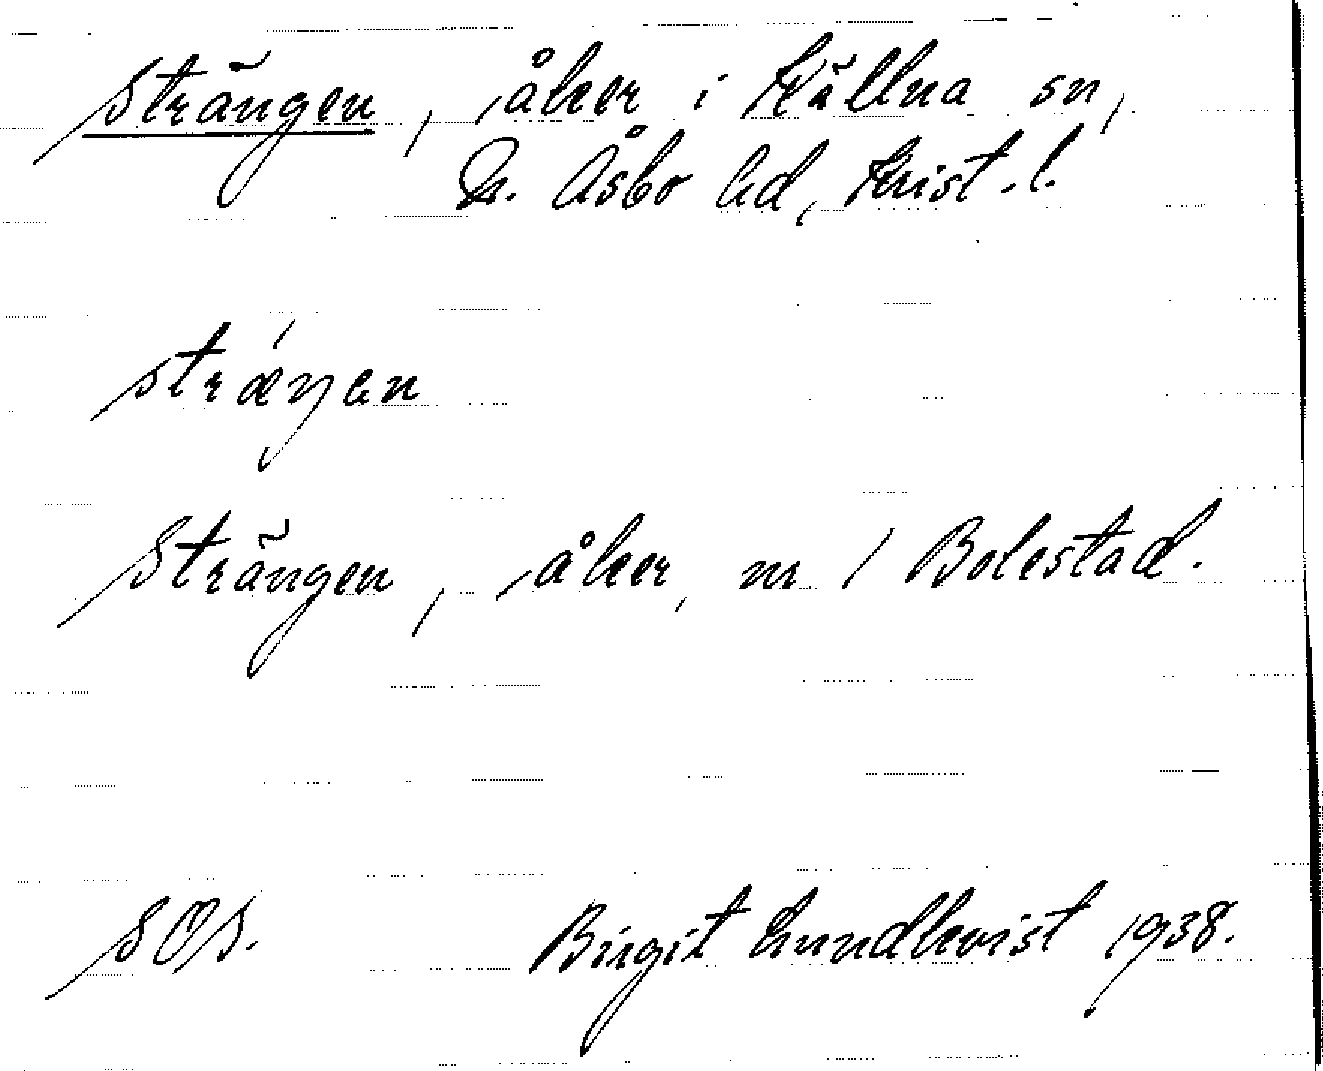 Strängen, åker i Källna sn,
N. Åsbo hd, Krist. l.
stræ´ŋen
Strängen, åker, nr 1 Bolestad.
SOS. Birgit Lundkvist 1938.